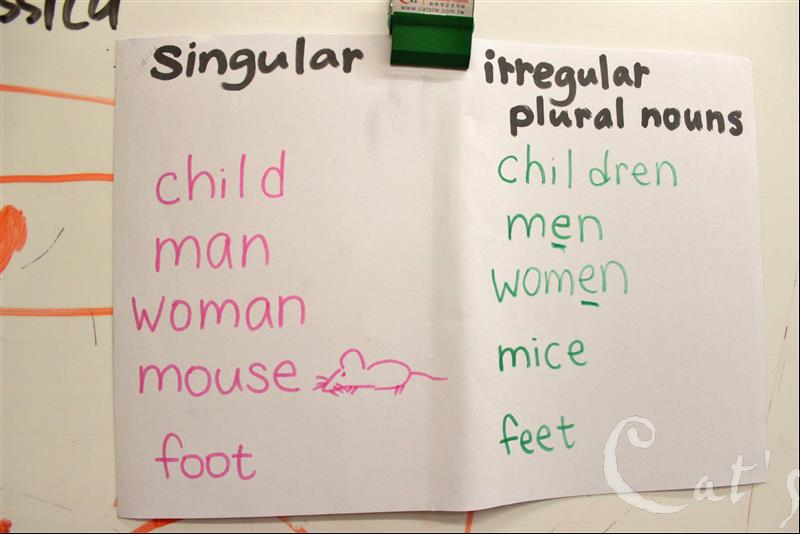 ssica
www.catstw.com.tw
Singular
irregular
plural nouns
child
children
man
men
woman
women
mouse
mice
foot
feet
Cat's